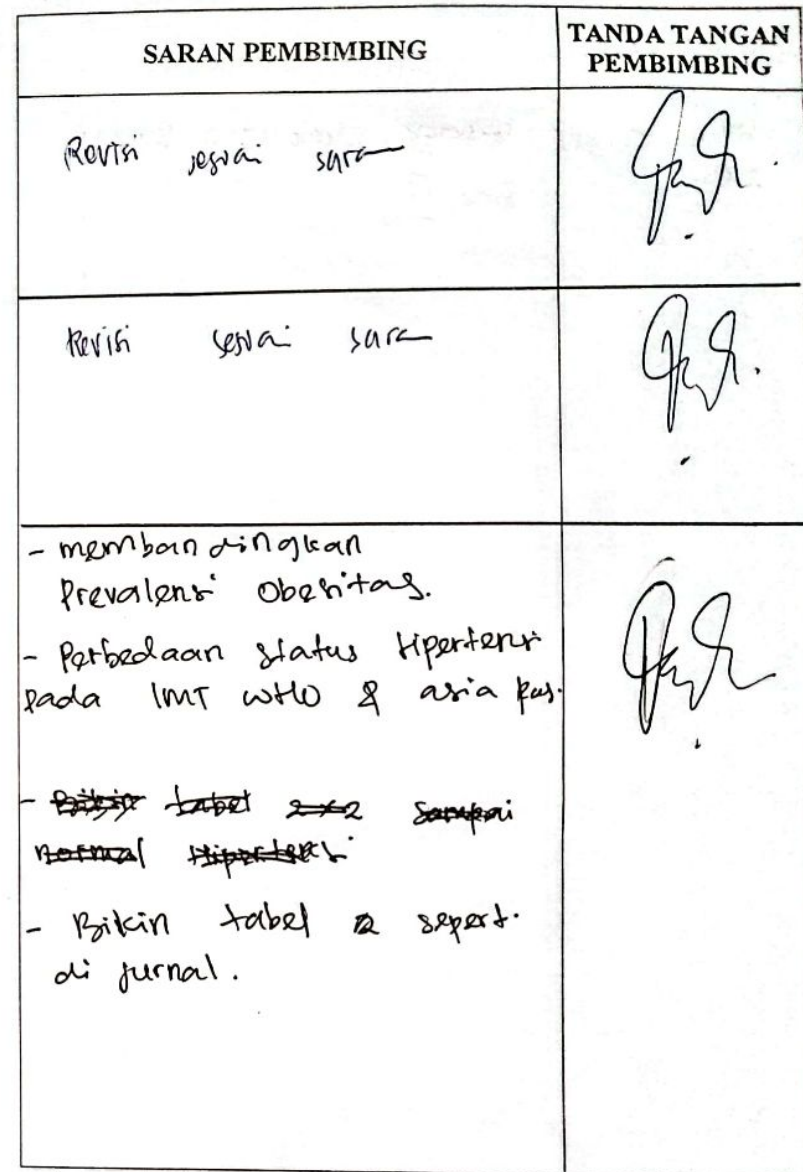 SARAN PEMBIMBING
TANDA TANGAN
PEMBIMBING
Revisi sesuai saran
Revisi sesuai saran
- membandingkan
Prevalensi Obesitas.
- Perbedaan status Hipertensi
pada IMT WHO & asia pas.
- Bikin tabel 2x2 sampai
normal Hipertensi
- Bikin tabel 2 sepert.
di jurnal.